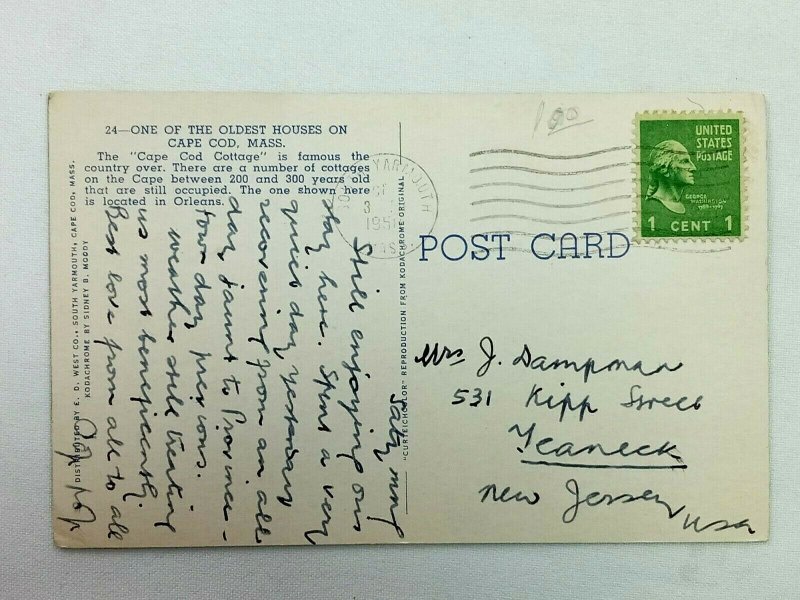 24—ONE OF THE OLDEST HOUSES ON
CAPE COD, MASS.
The "Cape Cod Cottage" is famous the
country over. There are a number of cottages
on the Cape between 200 and 300 years old
that are still occupied. The one shown here
is located in Orleans.
DISTRIBUTED BY E. D. WEST CO., SOUTH YARMOUTH, CAPE COD, MASS.
KODACHROME BY SIDNEY B. MOODY
Saty mng
Still enjoying our
stay here. Spent a very
quiet day yesterday
recovering from an all
day jaunt to Province-
town day previous.
Weather still treating
us most beneficently.
Best love from all to all
"CURTEICHCOLOR" REPRODUCTION FROM KODACHROME ORIGINAL
YARMOUTH
3
MASS
1.00
UNITED
STATES
POSTAGE
GEORGE
WASHINGTON
1789-1797
1 CENT 1
POST CARD
Mrs J. Dampman
531 Kipp Street
Teaneck
New Jersey
USA